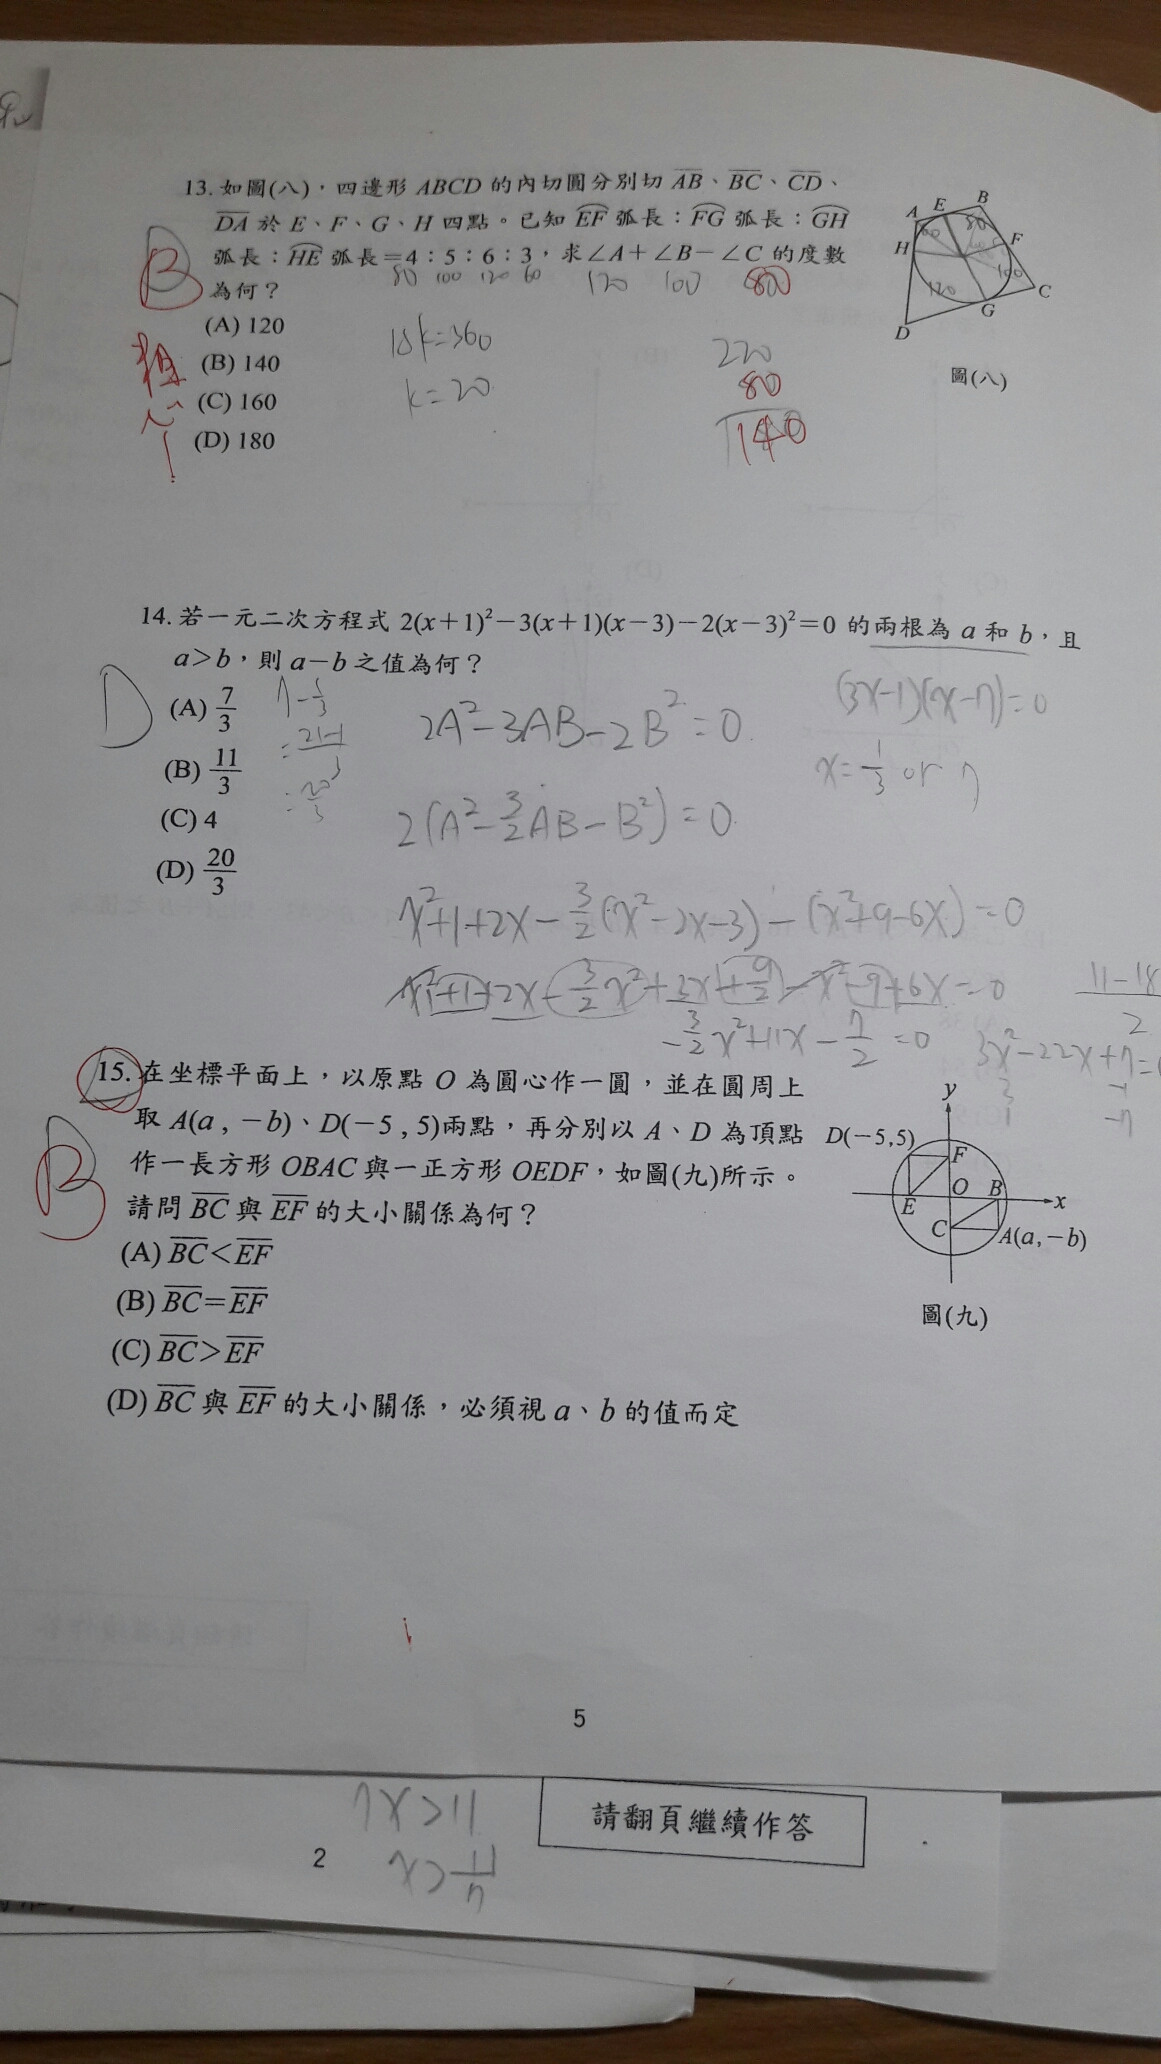 13. 如圖(八)，四邊形 ABCD 的內切圓分別切 AB、BC、CD、
DA 於 E、F、G、H 四點。已知 EF 弧長：FG 弧長：GH
弧長：HE 弧長=4：5：6：3，求∠A+∠B−∠C 的度數
80 100 120 60
120 100 80
為何？
B
(A) 120
(B) 140
(C) 160
(D) 180
粗心！
18k=360
k=20
220
80
140
A E B
H F
60 80 100 120
C
G
D
圖(八)
14. 若一元二次方程式 2(x+1)²−3(x+1)(x−3)−2(x−3)²=0 的兩根為 a 和 b，且
a>b，則 a−b 之值為何？
D
(A) 7/3
(B) 11/3
(C) 4
(D) 20/3
7−1/3
=21−1/3
=20/3
2A²−3AB−2B²=0
2(A²−3/2AB−B²)=0
(3x−1)(x−7)=0
x=1/3 or 7
x²+1+2x−3/2(x²−2x−3)−(x²+9−6x)=0
x²+1+2x−3/2x²+3x+9/2−x²−9+6x=0
11−18
2
−3/2x²+11x−7/2=0
3x²−22x+7=0
3 −1
1 −7
15. 在坐標平面上，以原點 O 為圓心作一圓，並在圓周上
取 A(a , −b)、D(−5 , 5)兩點，再分別以 A、D 為頂點
作一長方形 OBAC 與一正方形 OEDF，如圖(九)所示。
請問 BC 與 EF 的大小關係為何？
B
(A) BC<EF
(B) BC=EF
(C) BC>EF
(D) BC 與 EF 的大小關係，必須視 a、b 的值而定
y
D(−5,5)
F
O B
E
x
C
A(a, −b)
圖(九)
5
請翻頁繼續作答
2